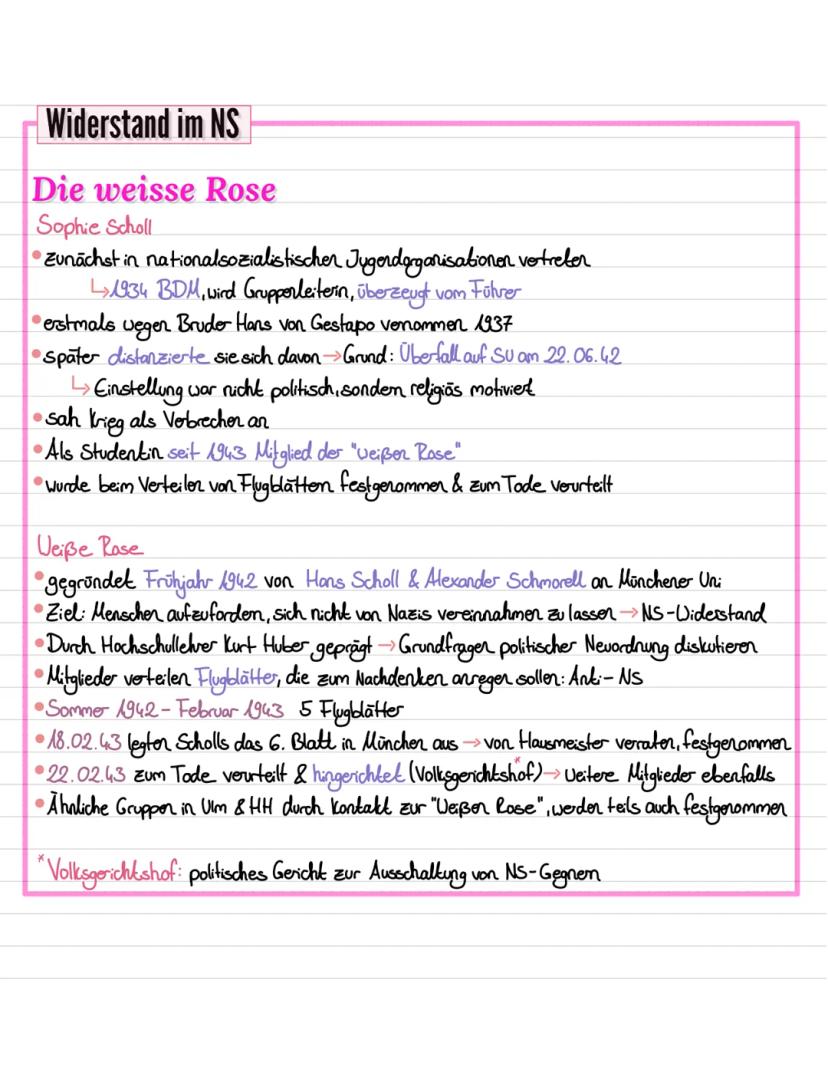 Widerstand im NS
Die weisse Rose
Sophie Scholl
• zunächst in nationalsozialistischen Jugendorganisationen vertreten
↳ 1934 BDM, wird Gruppenleiterin, überzeugt vom Führer
• erstmals wegen Bruder Hans von Gestapo vernommen 1937
• später distanzierte sie sich davon → Grund: Überfall auf SU am 22.06.42
↳ Einstellung war nicht politisch, sondern religiös motiviert
• sah Krieg als Verbrechen an
• Als Studentin seit 1943 Mitglied der "weißen Rose"
• wurde beim Verteilen von Flugblättern festgenommen & zum Tode verurteilt
Weiße Rose
• gegründet Frühjahr 1942 von Hans Scholl & Alexander Schmorell an Münchener Uni
• Ziel: Menschen aufzufordern, sich nicht von Nazis vereinnahmen zu lassen → NS-Widerstand
• Durch Hochschullehrer Kurt Huber geprägt → Grundfragen politischer Neuordnung diskutieren
• Mitglieder verteilen Flugblätter, die zum Nachdenken anregen sollen: Anti- NS
• Sommer 1942 - Februar 1943 5 Flugblätter
• 18.02.43 legten Scholls das 6. Blatt in München aus → von Hausmeister verraten, festgenommen
• 22.02.43 zum Tode verurteilt & hingerichtet (Volksgerichtshof*) → Weitere Mitglieder ebenfalls
• Ähnliche Gruppen in Ulm & HH durch Kontakt zur "Weißen Rose", werden teils auch festgenommen
* Volksgerichtshof: politisches Gericht zur Ausschaltung von NS-Gegnern